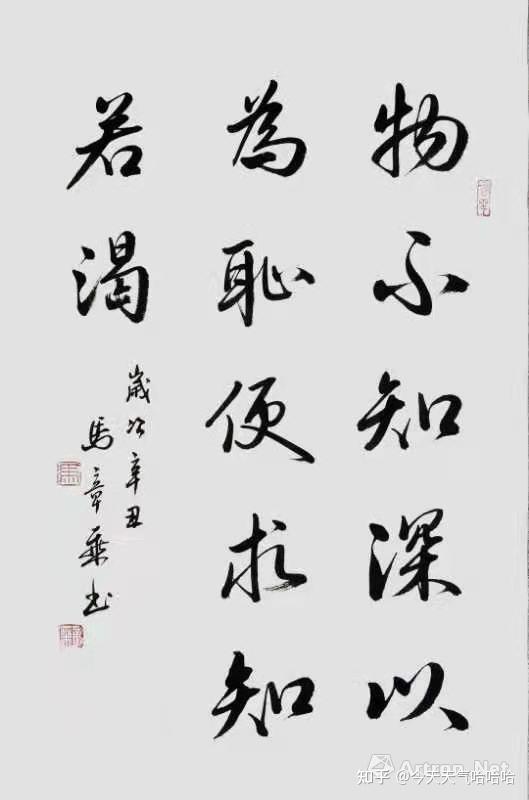 物不知深以
為恥便求知
若渴
歲次辛丑
馬章乘書
知乎 @今天天气哈哈哈
Artron.Net